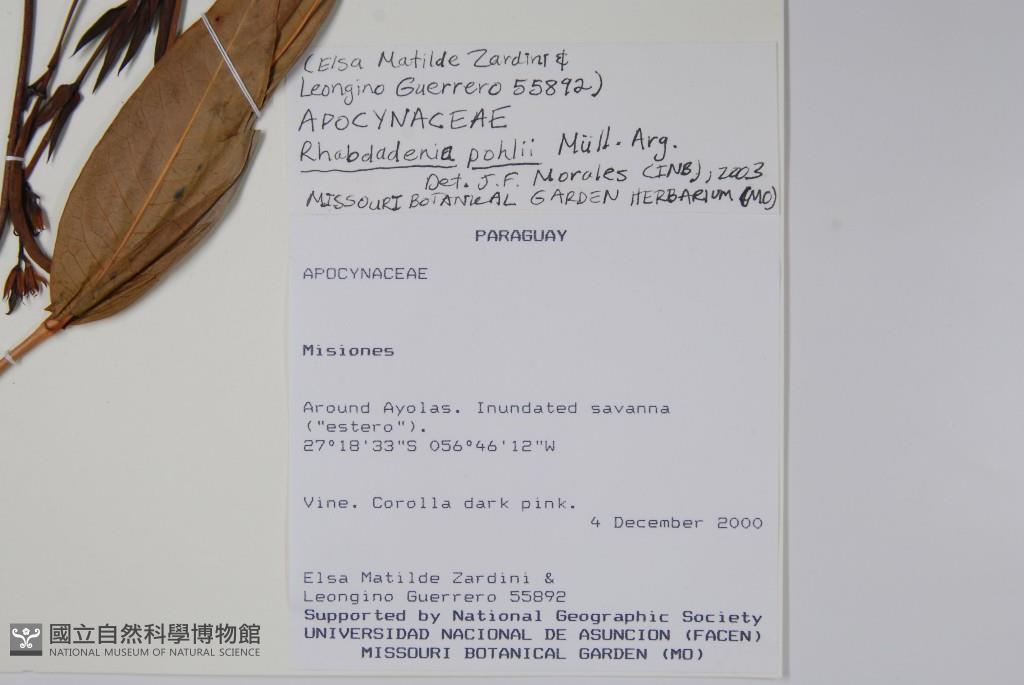 (Elsa Matilde Zardini &
Leongino Guerrero 55892)
APOCYNACEAE
Rhabdadenia pohlii Müll. Arg.
Det. J.F. Morales (INB), 2003
MISSOURI BOTANICAL GARDEN HERBARIUM (MO)
PARAGUAY
APOCYNACEAE
Misiones
Around Ayolas. Inundated savanna
("estero").
27°18'33"S 056°46'12"W
Vine. Corolla dark pink.
4 December 2000
Elsa Matilde Zardini &
Leongino Guerrero 55892
Supported by National Geographic Society
UNIVERSIDAD NACIONAL DE ASUNCION (FACEN)
MISSOURI BOTANICAL GARDEN (MO)
國立自然科學博物館
NATIONAL MUSEUM OF NATURAL SCIENCE